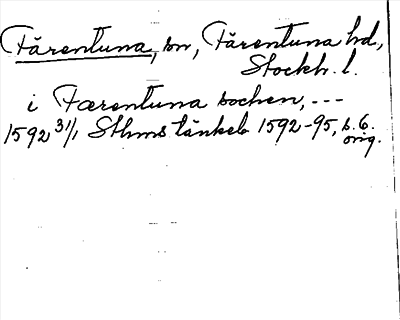 Färentuna, sn, Färentuna hd,
Stockh. l.
i Færentuna sochen, ---
1592 31/1 Sthms tänkeb 1592-95, s. 6.
orig.